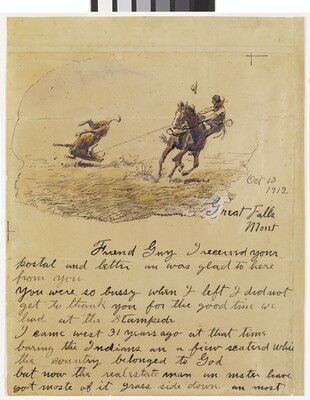 Oct 13
1912
Great Falls
Mont
Friend Guy I received your
postal and letter an was glad to here
from you
You were so bussy when I left I did not
get to thank you for the good time we
had at the Stampede
I came west 31 years ago at that time
baring the Indians an a fiew scaterd whits
the country belonged to God
but now the real estate man an nester have
got moste of it grass side down an most